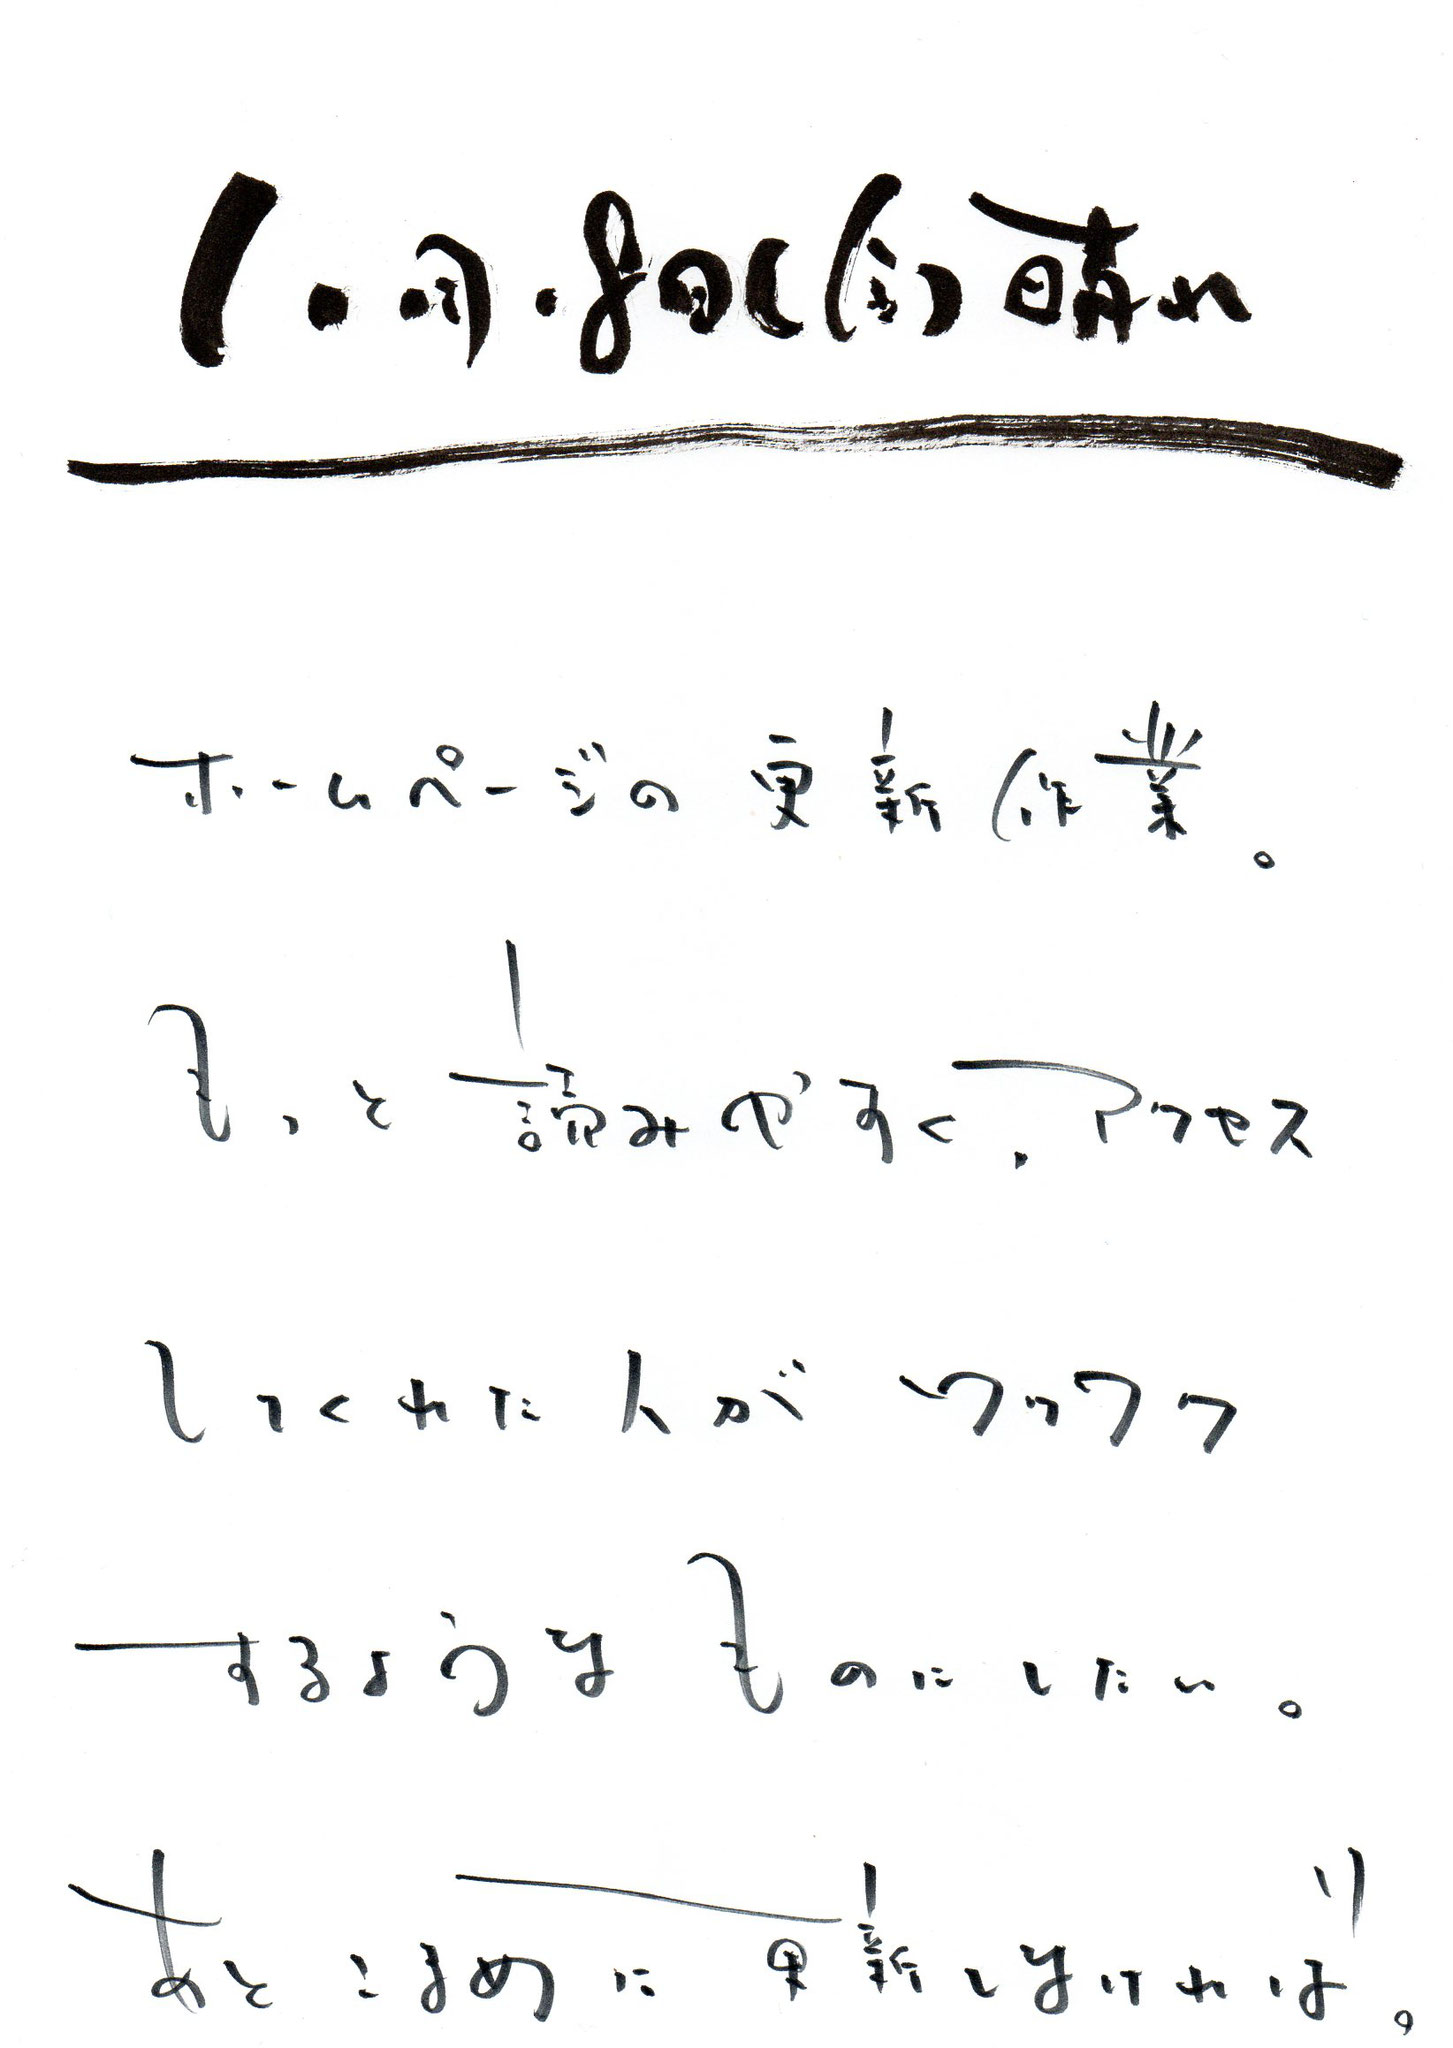 1.月.8日(金)晴れ
ホームページの更新作業。
もっと読みやすく、アクセス
してくれた人がワクワク
するようなものにしたい。
あとこまめに更新しなければ。